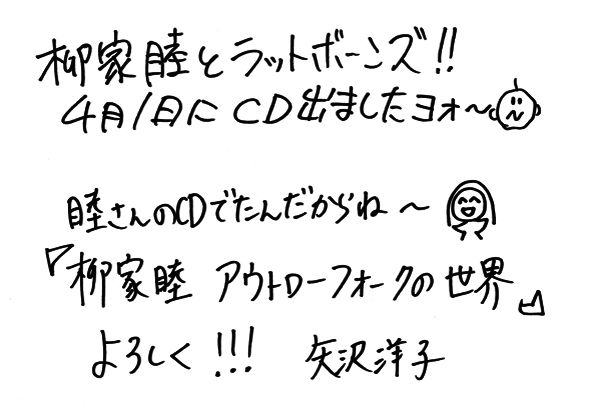 柳家睦とラットボーンズ!!
4月1日に CD出ましたヨォ〜
睦さんのCDでたんだからね〜
『柳家睦 アウトローフォークの世界』
よろしく!!! 矢沢洋子